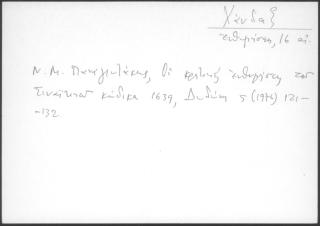 Χάνδαξ
ἐνθυμήσεις, 16 αἰ.
Ν. Μ. Παναγιωτάκης, Οἱ κρητικές ἐνθυμήσεις τοῦ
Σιναϊτικοῦ κώδικα 1639, Δωδώνη 5 (1976) 121-
-132.